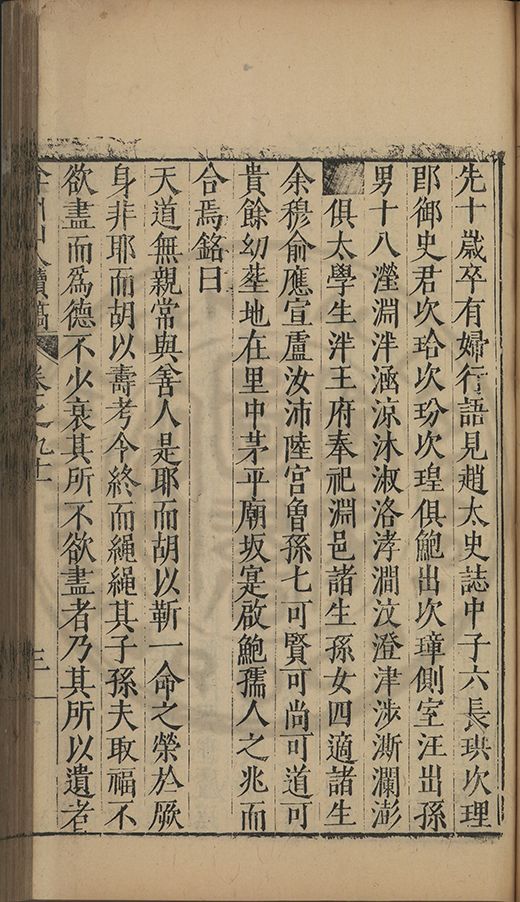 先十歲卒有婦行語見趙太史誌中子六長珙次理
即御史君次珆次玢次瑝俱鮑出次㻿側室汪出孫
男十八瀅淵泮涵涼沐淑洛渟澗汶澄津涉澌瀾澎
俱太學生泮王府奉祀淵邑諸生孫女四適諸生
余穆俞應宣盧汝沛陸宮曾孫七可賢可尚可道可
貴餘幼塟地在里中茅平廟坂寔啟鮑孺人之兆而
合焉銘曰
天道無親常與善人是耶而胡以靳一命之榮於厥
身非耶而胡以壽考令終而繩繩其子孫夫取福不
欲盡而為德不少衰其所不欲盡者乃其所以遺者
弇州山人續稿 卷之九十 三